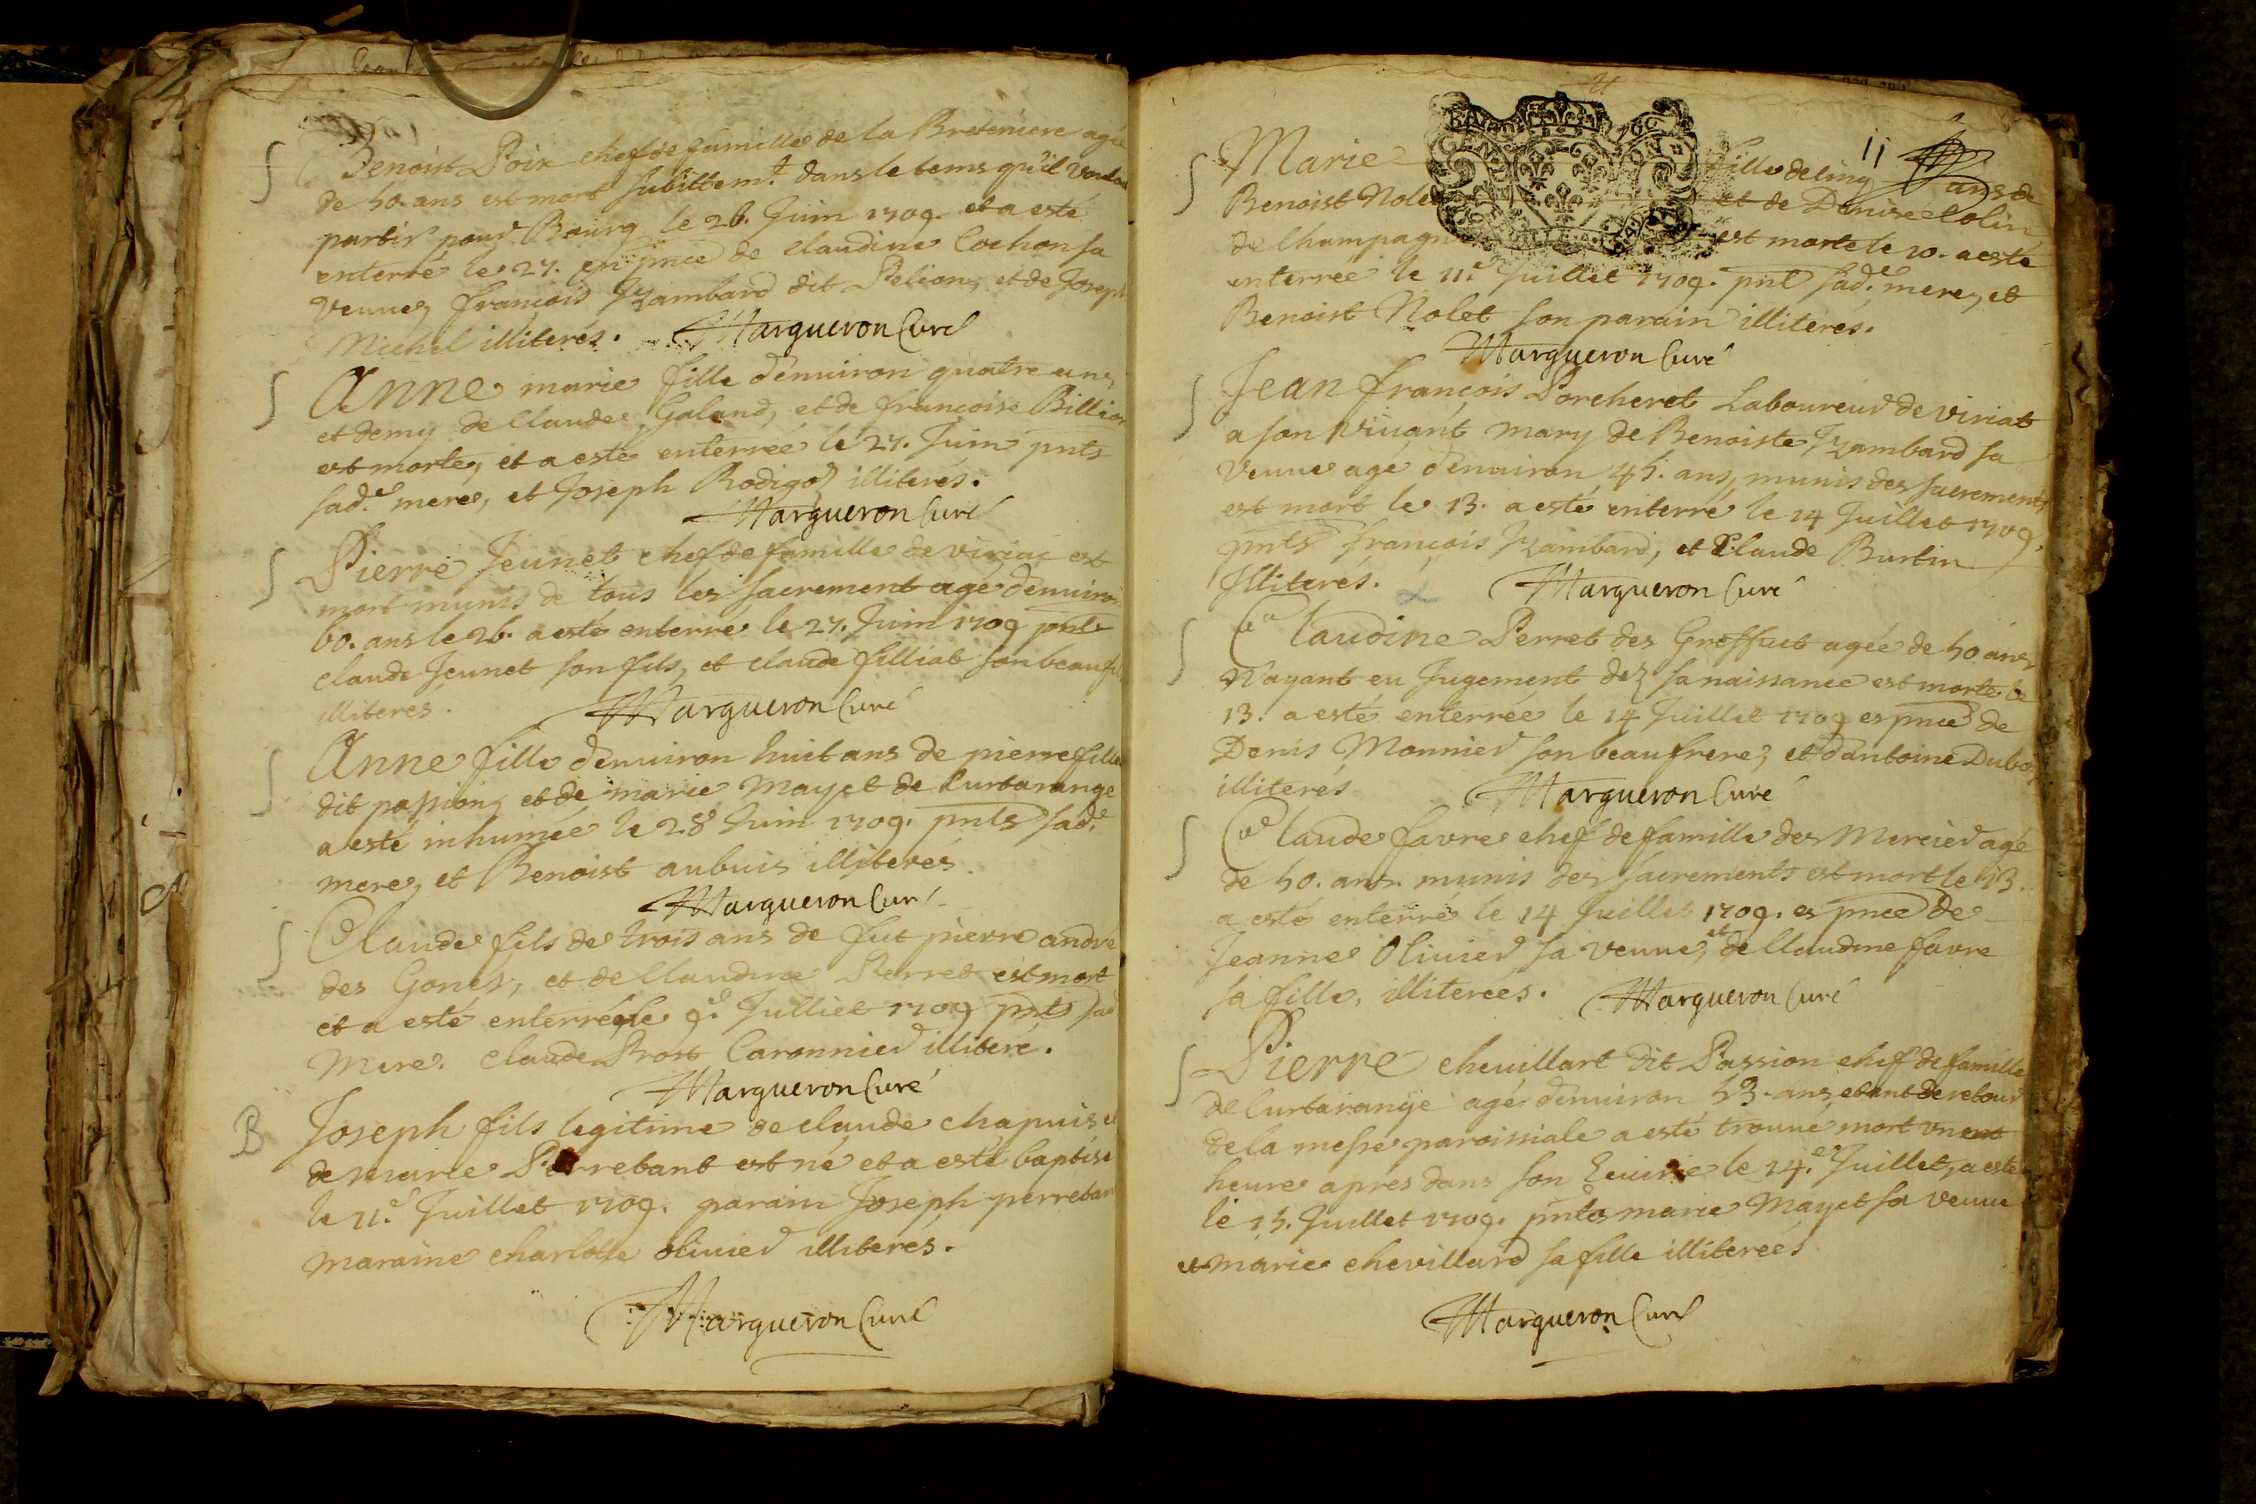 Benoist Poix chef de famille de la Breteniere agé
de 50. ans est mort subittemt. dans le tems qu'il vouloit
partir pour Bourg le 26. Juin 1709. et a esté
enterré le 27. en pnce de claudine Cochon sa
veuue, françois Rambard dit Pelion, et de Joseph
Michel illiterés. Margueron Curé
Anne marie fille d'enuiron quatre ans
et demy de Claude Galand, et de françoise Billion
est morte, et a esté enterrée le 27. Juin pnts
sad.e mere, et Joseph Rodigo illiterés.
Margueron Curé
Pierre Jeunet chef de famille de viriat est
mort munis de tous les sacrement agé d'enuiron
60. ans le 26. a esté enterré le 27. Juin 1709 pnts
claude Jeunet son fils, et claude filliat son beau fils
illiteres. Margueron Curé
Anne fille d'enuiron huit ans de pierre
dit passion, et de marie Mayet de Curtarange
a esté inhumée le 28e Juin 1709. pnts sad.e
mere, et Benoist aubuis illiterés.
Margueron Curé
Claude fils de trois ans de fut pierre andré
des Gonets, et de Claudine Perret est mort
et a esté enterré le 9.e Julliet 1709 pnts sad
Mere. claude Prost Caronnier illiteré.
Margueron Curé
B Joseph fils legitime de claude chapuis et
de marie Perretant est né et a esté baptisé
le 11.e Juillet 1709. parain Joseph perretant
maraine charlotte oliuier illiterés.
Margueron Curé
11
Marie fille de cinq ans de
Benoist Nolet et de Denise Colin
de Champagne est morte le 10. a esté
enterrée le 11.e Juillet 1709. pnt sad.e mere, et
Benoist Nolet son parain illiteres.
Margueron Curé
Jean françois Porcheret Laboureur de viriat
a son viuant mary de Benoiste Rambard sa
veuue agé d'enuiron 45. ans, munis des sacrements
est mort le 13. a esté enterré le 14 Juillet 1709.
pnts françois Rambard, et Claude Burtin
Illiterés. Margueron Curé
Claudine Perret des Greffuet agée de 50 ans
N'ayant eu Jugement dez sa naissance est morte le
13. a esté enterrée le 14 Juillet 1709 es pnce de
Denis Monnier son beaufrere, et d'antoine Duboy
illiterés Margueron Curé
Claude favre chef de famille des Mercier agé
de 50. ans. munis des sacrements est mort le 13.
a esté enterré le 14 Juillet 1709. es pnce de
Jeanne Oliuier sa veuue, et de Claudine favre
sa fille, illiterées. Margueron Curé
Pierre cheuillart dit Passion chef de famille
de Curtarange agé d'enuiron 53. ans, etant de retour
de la messe paroissiale a esté trouué mort un
heure aprés dans son Ecuirie le 14.e Juillet, a esté
le 15. Juillet 1709. pnts marie Mayet sa veuue
et marie chevillard sa fille illiterées
Margueron Curé